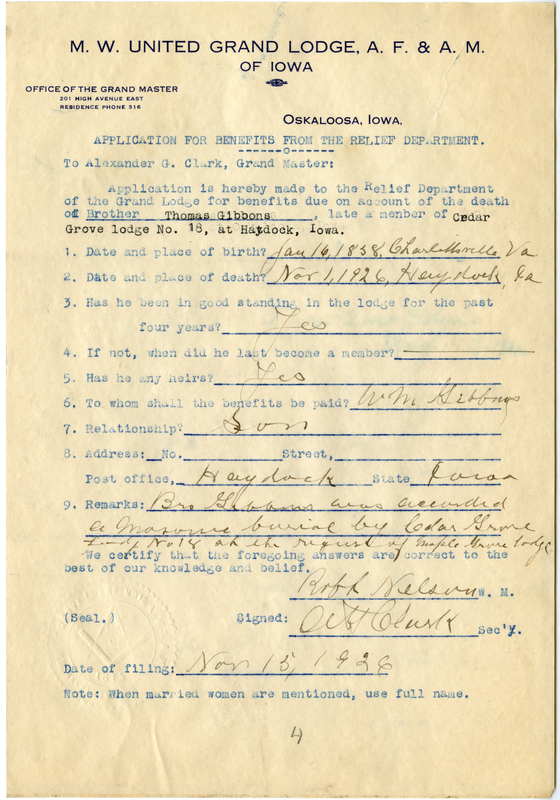 M. W. UNITED GRAND LODGE, A. F. & A. M.
OF IOWA
OFFICE OF THE GRAND MASTER
201 HIGH AVENUE EAST
RESIDENCE PHONE 316
OSKALOOSA, IOWA.
APPLICATION FOR BENEFITS FROM THE RELIEF DEPARTMENT.
------o------
To Alexander G. Clark, Grand Master:
Application is hereby made to the Relief Department
of the Grand Lodge for benefits due on account of the death
of Brother Thomas Gibbons, late a menber of Cedar
Grove lodge No. 18, at Haydock, Iowa.
1. Date and place of birth? Jan 16, 1858, Charlottsville, Va
2. Date and place of death? Nov 1, 1926, Haydock, Ia
3. Has he been in good standing in the lodge for the past
four years? Yes
4. If not, when did he last become a member?
5. Has he any heirs? Yes
6. To whom shall the benefits be paid? Wm Gibbons
7. Relationship? Son
8. Address: No. Street,
Post office, Haydock State Iowa
9. Remarks: Bro Gibbons was accorded
a Masonic burial by Cedar Grove
Lodge No 18 at the request of Maple Grove Lodge
We certify that the foregoing answers are correct to the
best of our knowledge and belief.
Robt Nelson W. M.
(Seal.) Signed: Clark Sec'y.
Date of filing: Nov 15, 1926
Note: When married women are mentioned, use full name.
4